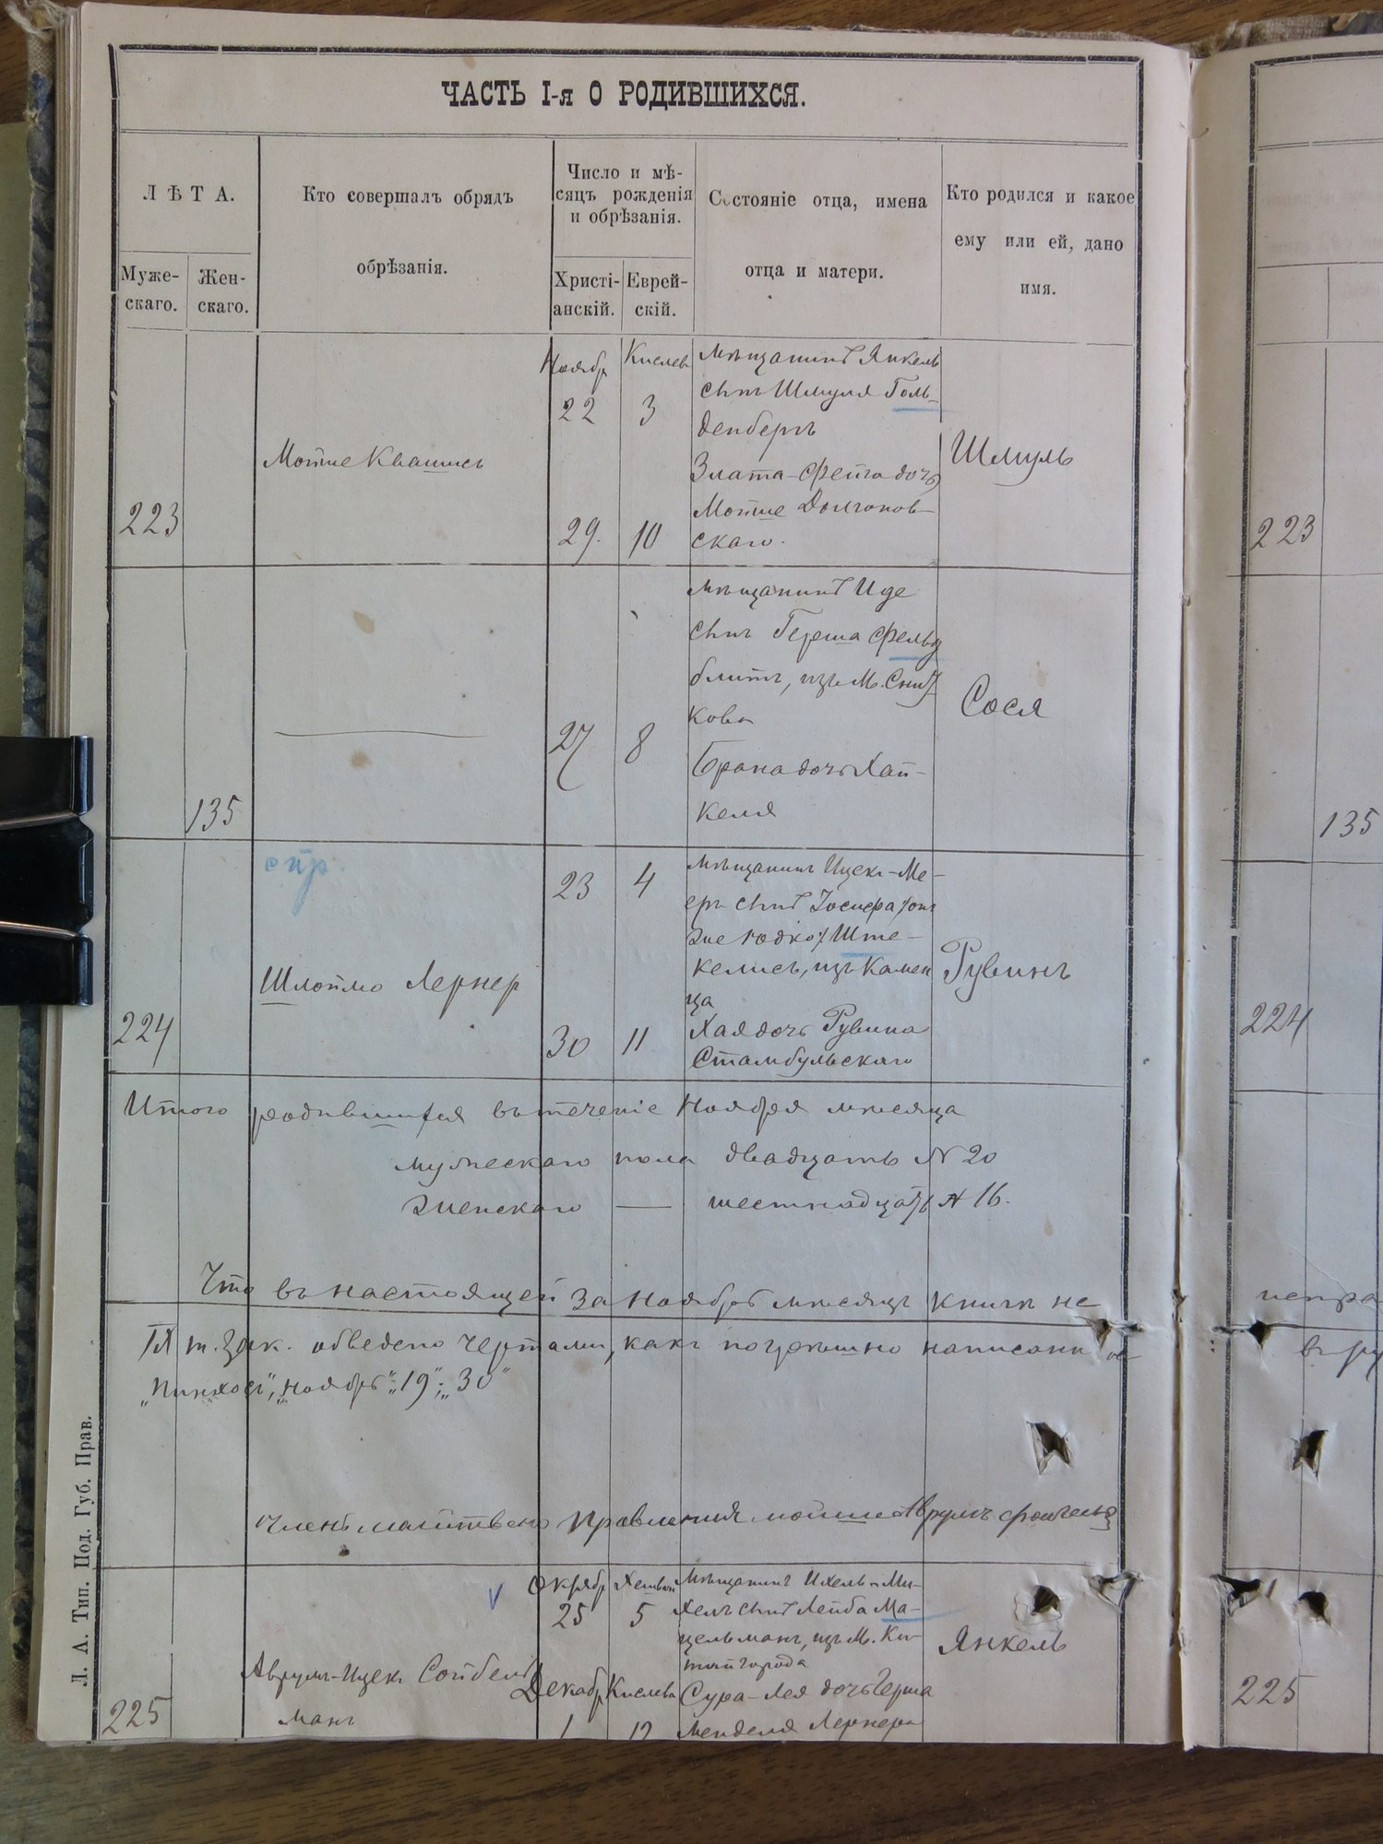 ЧАСТЬ I-я О РОДИВШИХСЯ.
ЛѢТА.
Муже-
скаго.
Жен-
скаго.
Кто совершалъ обрядъ
обрѣзанія.
Число и мѣ-
сяцъ рожденія
и обрѣзанія.
Христі-
анскій.
Еврей-
скій.
Состояніе отца, имена
отца и матери.
Кто родился и какое
ему или ей, дано
имя.
223
Мотше Квашисъ
Ноябр
22
29.
Кислев
3
10
Мѣщанинъ Янкель
сынъ Шмуля Голь-
денбергъ
Злата-Фейга дочь
Мотше Долгонов-
скаго.
Шмуль
135
27
8
Мѣщанинъ Иде
сынъ Герша Фельд
блитъ, изъ М. Снит
кова
Брана дочь Хай-
келя
Сося
стр.
224
Шлоймо Лернер
23
30
4
11
Мѣщанинъ Ицекъ-Ме-
еръ сынъ Іосифа /онъ
же Юдко/ Ште-
келисъ, изъ Камен
ца
Хая дочь Рувина
Стамбульскаго
Рувинъ
Итого родившихся въ теченіе Ноября мѣсяца
мужескаго пола двадцать № 20
женскаго — шестнадцать № 16.
Что въ настоящей за Ноябрь мѣсяцъ книги не
обведено чертами, какъ погрѣшно написани
„Пинхосъ", „Ноябрь" „19"; „30"
Членъ Правленія Мойше Аврумъ
225
Аврумъ-Ицекъ Сойбель
манъ
Октябр
25
Декабр
1
5
Кислева
12
Мѣщанинъ Ихель-Ми-
хель сынъ Лейба Ма-
цельманъ, изъ М. Ки-
тайгорода
Сура-Лея дочь Герша
Менделя Лернера
Янкель
Л. А. Тип. Под. Губ. Прав.
223
135
224
225